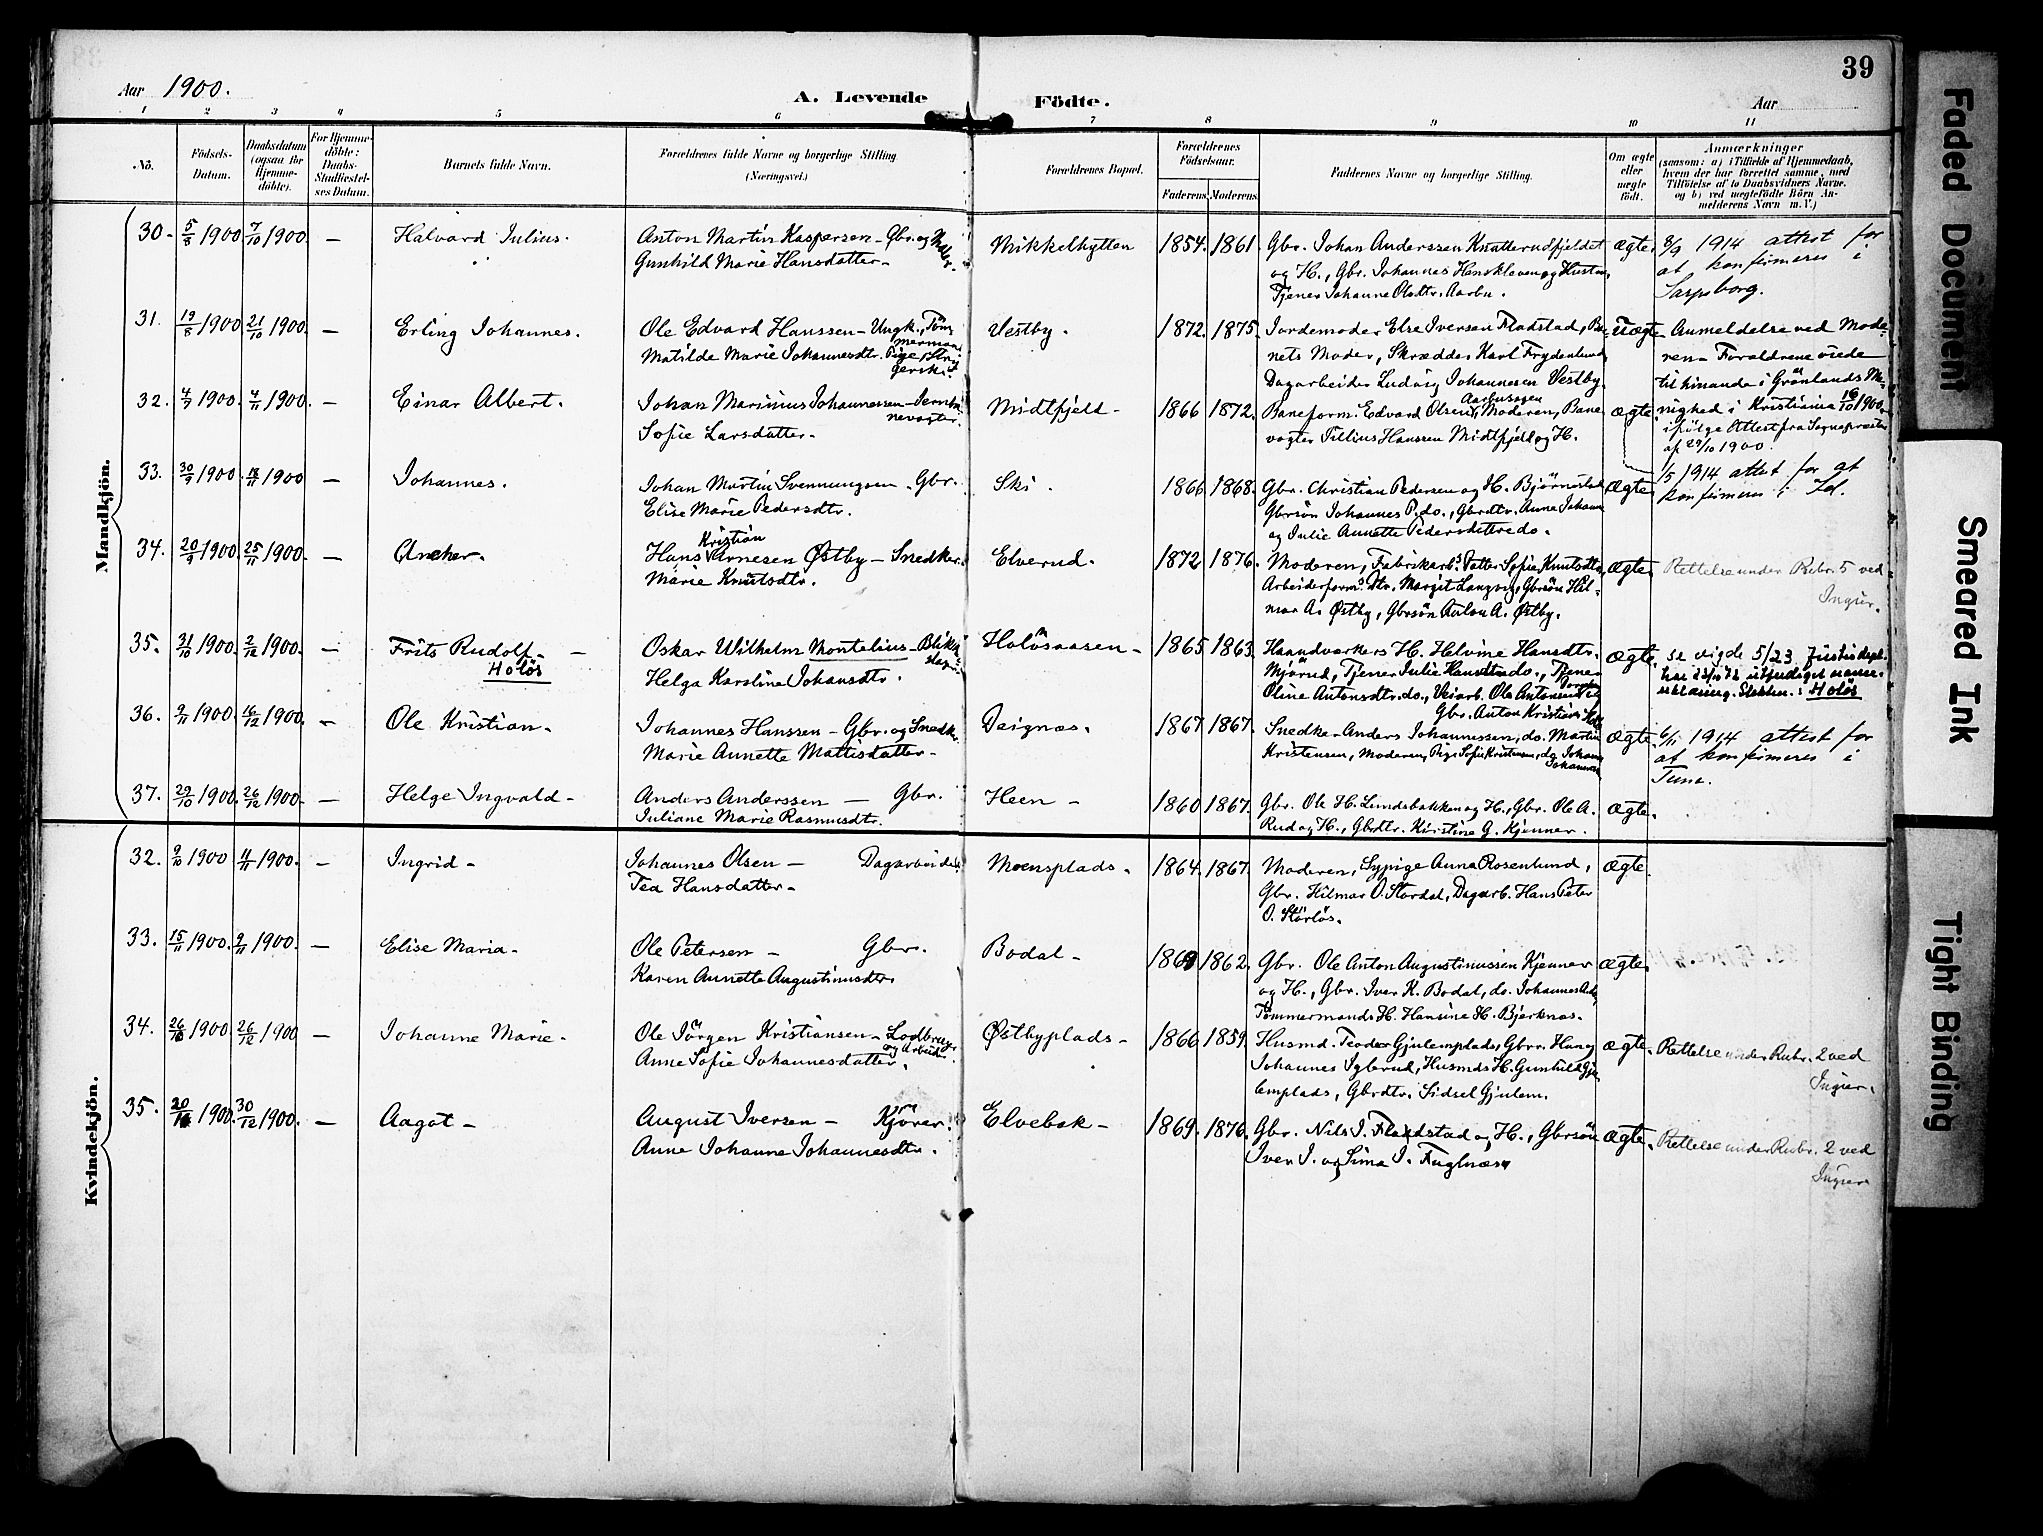 39
Aar 1900.
A. Levende Födte.
Aar
1 2 3 4 5 6 7 8 9 10 11
No.
Födsels-Datum.
Daabsdatum (ogsaa for Hjemme-döbte).
For Hjemme-döbte: Daabs-Stadfæstel-ses Datum.
Barnets fulde Navn.
Forældrenes fulde Navne og borgerlige Stilling (Næringsvei.)
Forældrenes Bopæl.
Forældrenes Födselsaar.
Faderens Moderens
Faddernes Navne og borgerlige Stilling.
Om ægte eller uægte födt.
Anmærkninger
(saasom: a) i Tilfælde af Hjemmedaab,
hvem der har forrettet samme, med
Tilföielse af to Daabsvidners Navne.
og b) ved uægtefödte Börn An-
melderens Navn m. V.)
Mandkjön.
30. 5/8 1900 7/10 1900. — Halvard Julius. Anton Martin Kaspersen - Gbr. og Mikkelhytten 1854. 1861 Gbr. Johan Anderssen Knatterudfjeldet ægte. 8/9 1914 attest for
Gunhild Marie Hansdatter - og H., Gbr. Johannes Henskleven og Hustru, at konfirmeres i
Tjener Johanne Olsdtr. Aarbu. Sarpsborg.
31. 19/8 1900 21/10 1900. — Erling Johannes. Ole Edvard Hanssen - Ungk., Töm Vestby. 1872. 1875. Jordemoder Else Iversen Fladstad, Bar- Uægte Anmeldelse ved Mode-
mermand
Matilde Marie Johannesdtr. Pige, Stry- nets Moder, Skrædder Karl Frydenlund ren - Forældrene viede
gerske Dagarbeider Ludvig Johannesen Vestby. til hinanden i Grönlands Me-
32. 4/9 1900. 4/11 1900. — Einar Albert. Johan Marinius Johannessen - Jernba- Midtfjeld - 1866 1872. Baneform. Edvard Olsen Aarbusagen, Moderen, Bane- ægte nighed i Kristiania 16/10 1900.
nevogter. ifölge Attest fra Sognepræsten
Sofie Larsdatter - vogter Tillius Hanssen Midtfjeld og H. af 29/10 1900.
33. 30/9 1900. 18/11 1900 — Johannes. Johan Martin Svenningsen - Gbr. Ski. 1866 1868. Gbr. Christian Pedersen og H. Bjørnstad ægte. 1/5 1914 attest for at
Elise Marie Pedersdtr. Gbrsön Johannes P. do., Gbrdtr. Anna Johanne konfirmeres i
og Julie Annette Pedersdöttre do.
34. 20/9 1900. 25/11 1900. — Ancher. Hans Kristian Arnesen Østby - Snedker. Elverud. 1872 1876. Moderen, Fabrikarb.s Datter Sofie Knutsdtr. ægte. Rettelse under Rubr. 5 ved
Marie Knutsdtr. Arbeiderform. Margit Langvig, Gbrsön Hil- Ingier.
mar A. Østby, Gbrsön Anton A. Østby.
35. 31/10 1900. 2/12 1900. — Frits Rudolf - Oskar Wilhelm Montelius - Blikkenslager Holösaasen - 1865 1863. Haandværkers H. Helvine Hansdtr. ægte. se vigde 5/23 Justisdept.
Holös
Helga Karoline Johansdtr. Mjörud, Tjener Julie Hansdtr. do., Tjener har utferdiget navne-
Oline Antonsdtr. do., Veiarb. Ole Antonius erklæring. Slektn.: Holös
36. 9/11 1900. 16/12 1900. — Ole Kristian. Johannes Hanssen - Gbr. og Snedk. Deignæs. 1867 1867. Gbr. Anton Kristian
Marie Annette Mattisdatter - Snedker Anders Johannessen, do. Martin ægte. 6/11 1914 attest for
Kristensen, Moderen, Pige Sofie Kristensen, do. Johanne at konfirmeres i
Johannes Tune.
37. 29/10 1900. 26/12 1900. — Helge Ingvald - Anders Anderssen — Gbr. Heen - 1860 1867. Gbr. Ole H. Lundebakken og H., Gbr. Ole A. ægte.
Juliane Marie Rasmusdtr. Rud og H., Gbrdtr. Kirstine G. Kjenner.
Kvindekjön.
32. 9/10 1900 4/11 1900. — Ingrid - Johannes Olsen — Dagarbeider. Moensplads. 1864. 1867. Moderen, Sypige Anna Rosenlund, ægte.
Tea Hansdatter - Gbr. Hilmar O. Stordal, Dagarb. Hans Peter
O. Störlös.
33. 15/11 1900. 9/11 1900. — Elise Maria - Ole Petersen — Gbr. Bodal - 1869 1862. Gbr. Ole Anton Augustinussen Kjenner ægte.
Karen Annette Augustinusdtr. og H., Gbr. Iver K. Bodal, do. Johannes A. do.
Tömmermands H. Hansine H. Bjerknæs.
34. 26/10 1900 26/12 1900 — Johanne Marie - Ole Jörgen Kristiansen - Lodbruger Østbyplads - 1866 1859. Husmd. Teodor Gjulemplads, Gbr. Hans ægte. Rettelse under Rubr. 2 ved
og Arbeider.
Anne Sofie Johannesdatter. Johannes Igletud, Husmds H. Gunhild Gju- Ingier.
lemplads, Gbrdtr. Sidsel Gjulem.
35. 20/11 1900. 30/12 1900. — Aagot - August Iversen — Kjörer. Elvebak - 1869. 1876. Gbr. Nils I. Fladstad og H., Gbrsön ægte. Rettelse under Rubr. 2 ved
Anne Johanne Johannesdtr. Iver I. og Sina I. Fuglnæs. Ingier
Faded Document
Smeared Ink
Tight Binding